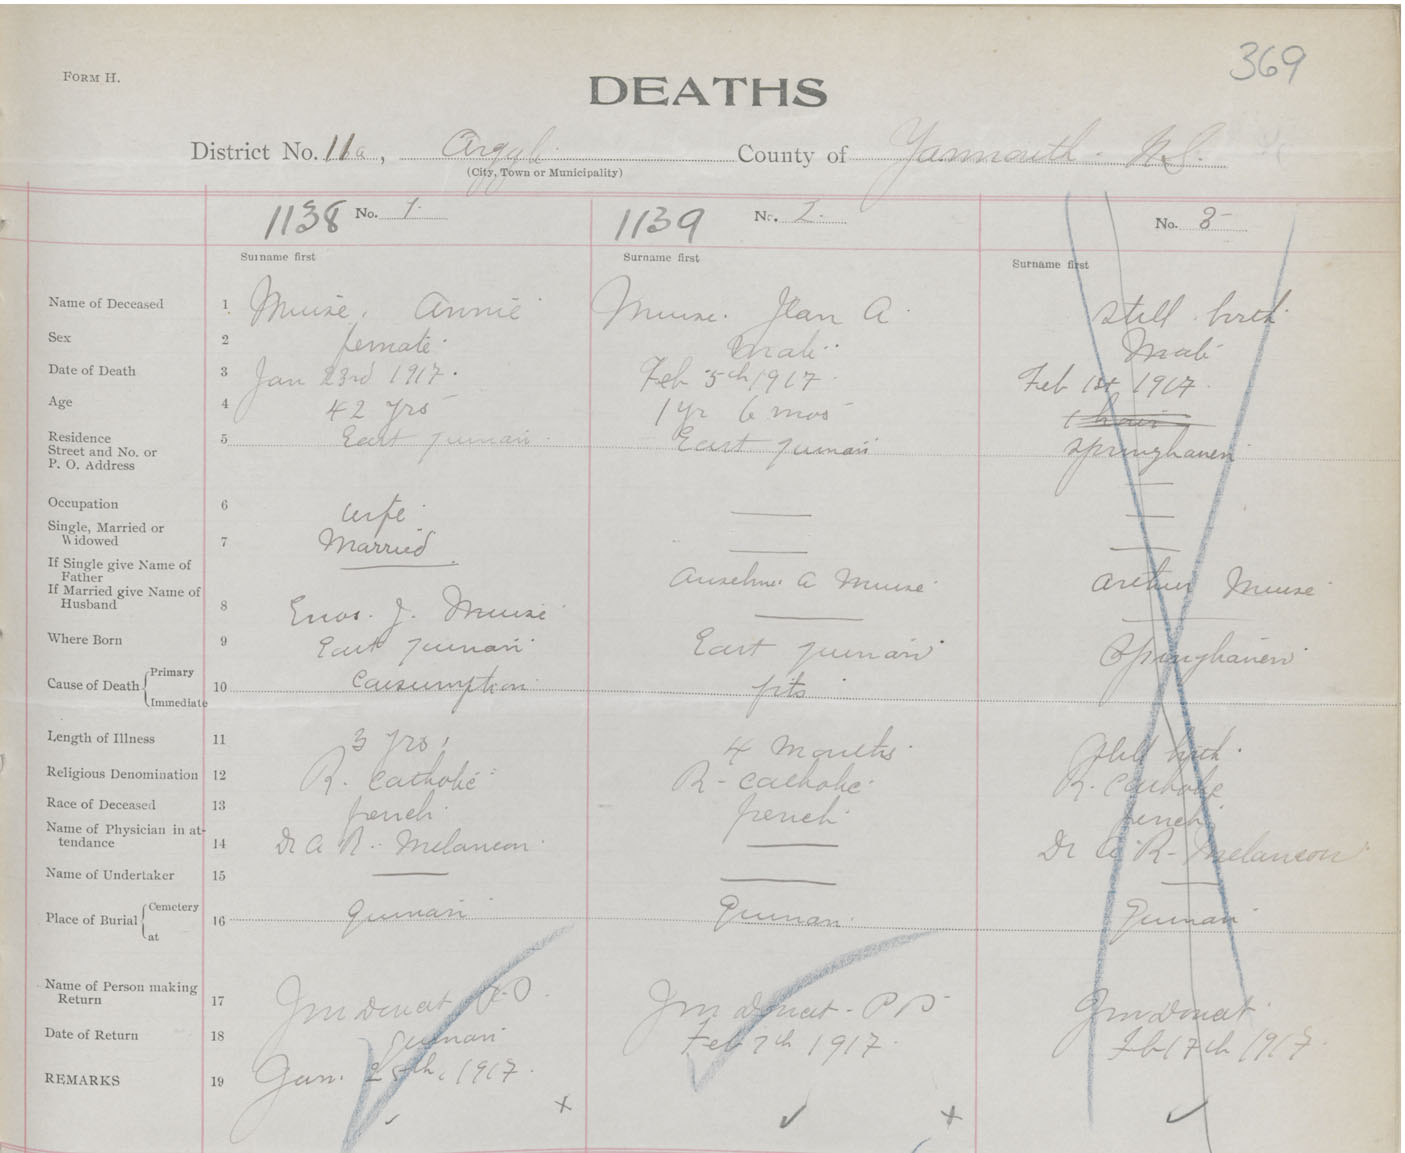 369
FORM H.
DEATHS
District No. 11a, Argyle County of Yarmouth N.S.
(City, Town or Municipality)
1138 No. 1. 1139 No. 2. No. 3
Surname first Surname first Surname first
Name of Deceased 1 Muise, Annie Muise. Jean A. Still birth
Sex 2 female Male Male
Date of Death 3 Jan 23rd 1917. Feb 5th 1917. Feb 1st 1917.
Age 4 42 yrs 1 yr 6 mos 1 hour
Residence
Street and No. or
P. O. Address
5 East quinan East quinan Springhaven
Occupation 6 wife
Single, Married or
Widowed
7 Married
If Single give Name of
Father
Anselme A Muise Arthur Muise
If Married give Name of
Husband
8 Enos. J. Muise
Where Born 9 East quinan East quinan Springhaven
Cause of Death { Primary
Immediate
10 Consumption fits
Length of Illness 11 3 yrs, 4 Months Still birth.
Religious Denomination 12 R. Catholic R- Catholic R. Catholic
Race of Deceased 13 french french french
Name of Physician in at-
tendance
14 Dr A R. Melancon Dr A R- Melancon
Name of Undertaker 15
Place of Burial { Cemetery
at
16 quinan Quinan Quinan
Name of Person making
Return
17 P.P. P P
quinan
Date of Return 18 Feb 7th 1917. Feb 17th 1917
REMARKS 19 Jan. 25th, 1917.